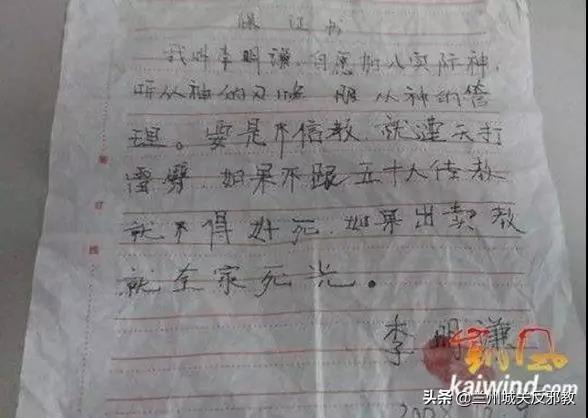 保证书
我叫李明谦,自愿加入实际神,
听从神的 服从神的管
理。要是不信教,就遭天打
雷劈,如果不跟五十人传教
就不得好死,如果出卖教
就全家死光。
李明谦
凯风
kaiwind.com
头条 @兰州城关反邪教